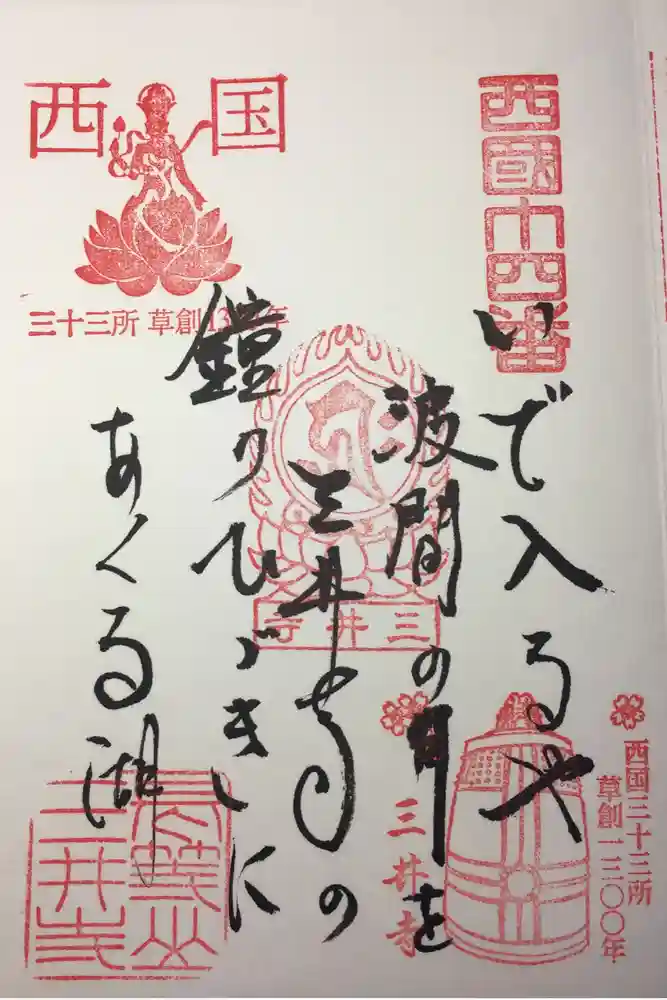 西国十四番
いで入るや
波間の月を
三井寺の
鐘のひゞきに
あくる湖
西国
三十三所 草創1300年
三井寺
三井寺
西国三十三所
草創一三〇〇年
長等山
三井寺